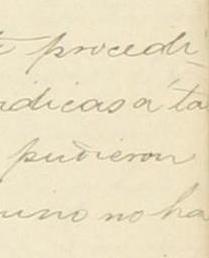 procedi-
dicas a ta
pudieron
uno no ha